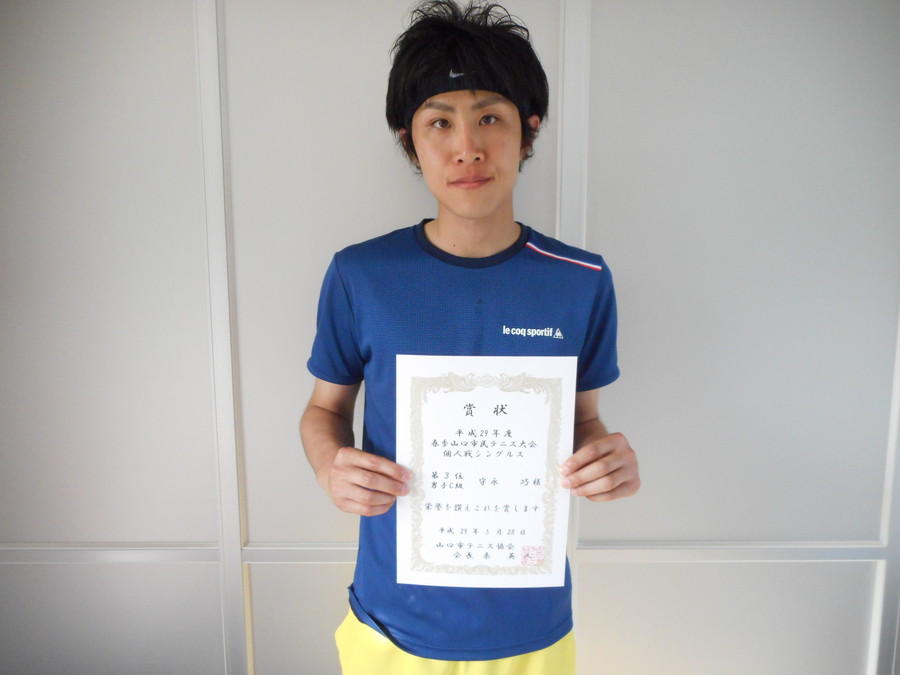 le coq sportif
賞状
平成29年度
春季山口市民テニス大会
個人戦シングルス
第3位
男子C組
守永 巧様
栄誉を讃えこれを賞します
平成29年5月28日
山口市テニス協会
会長